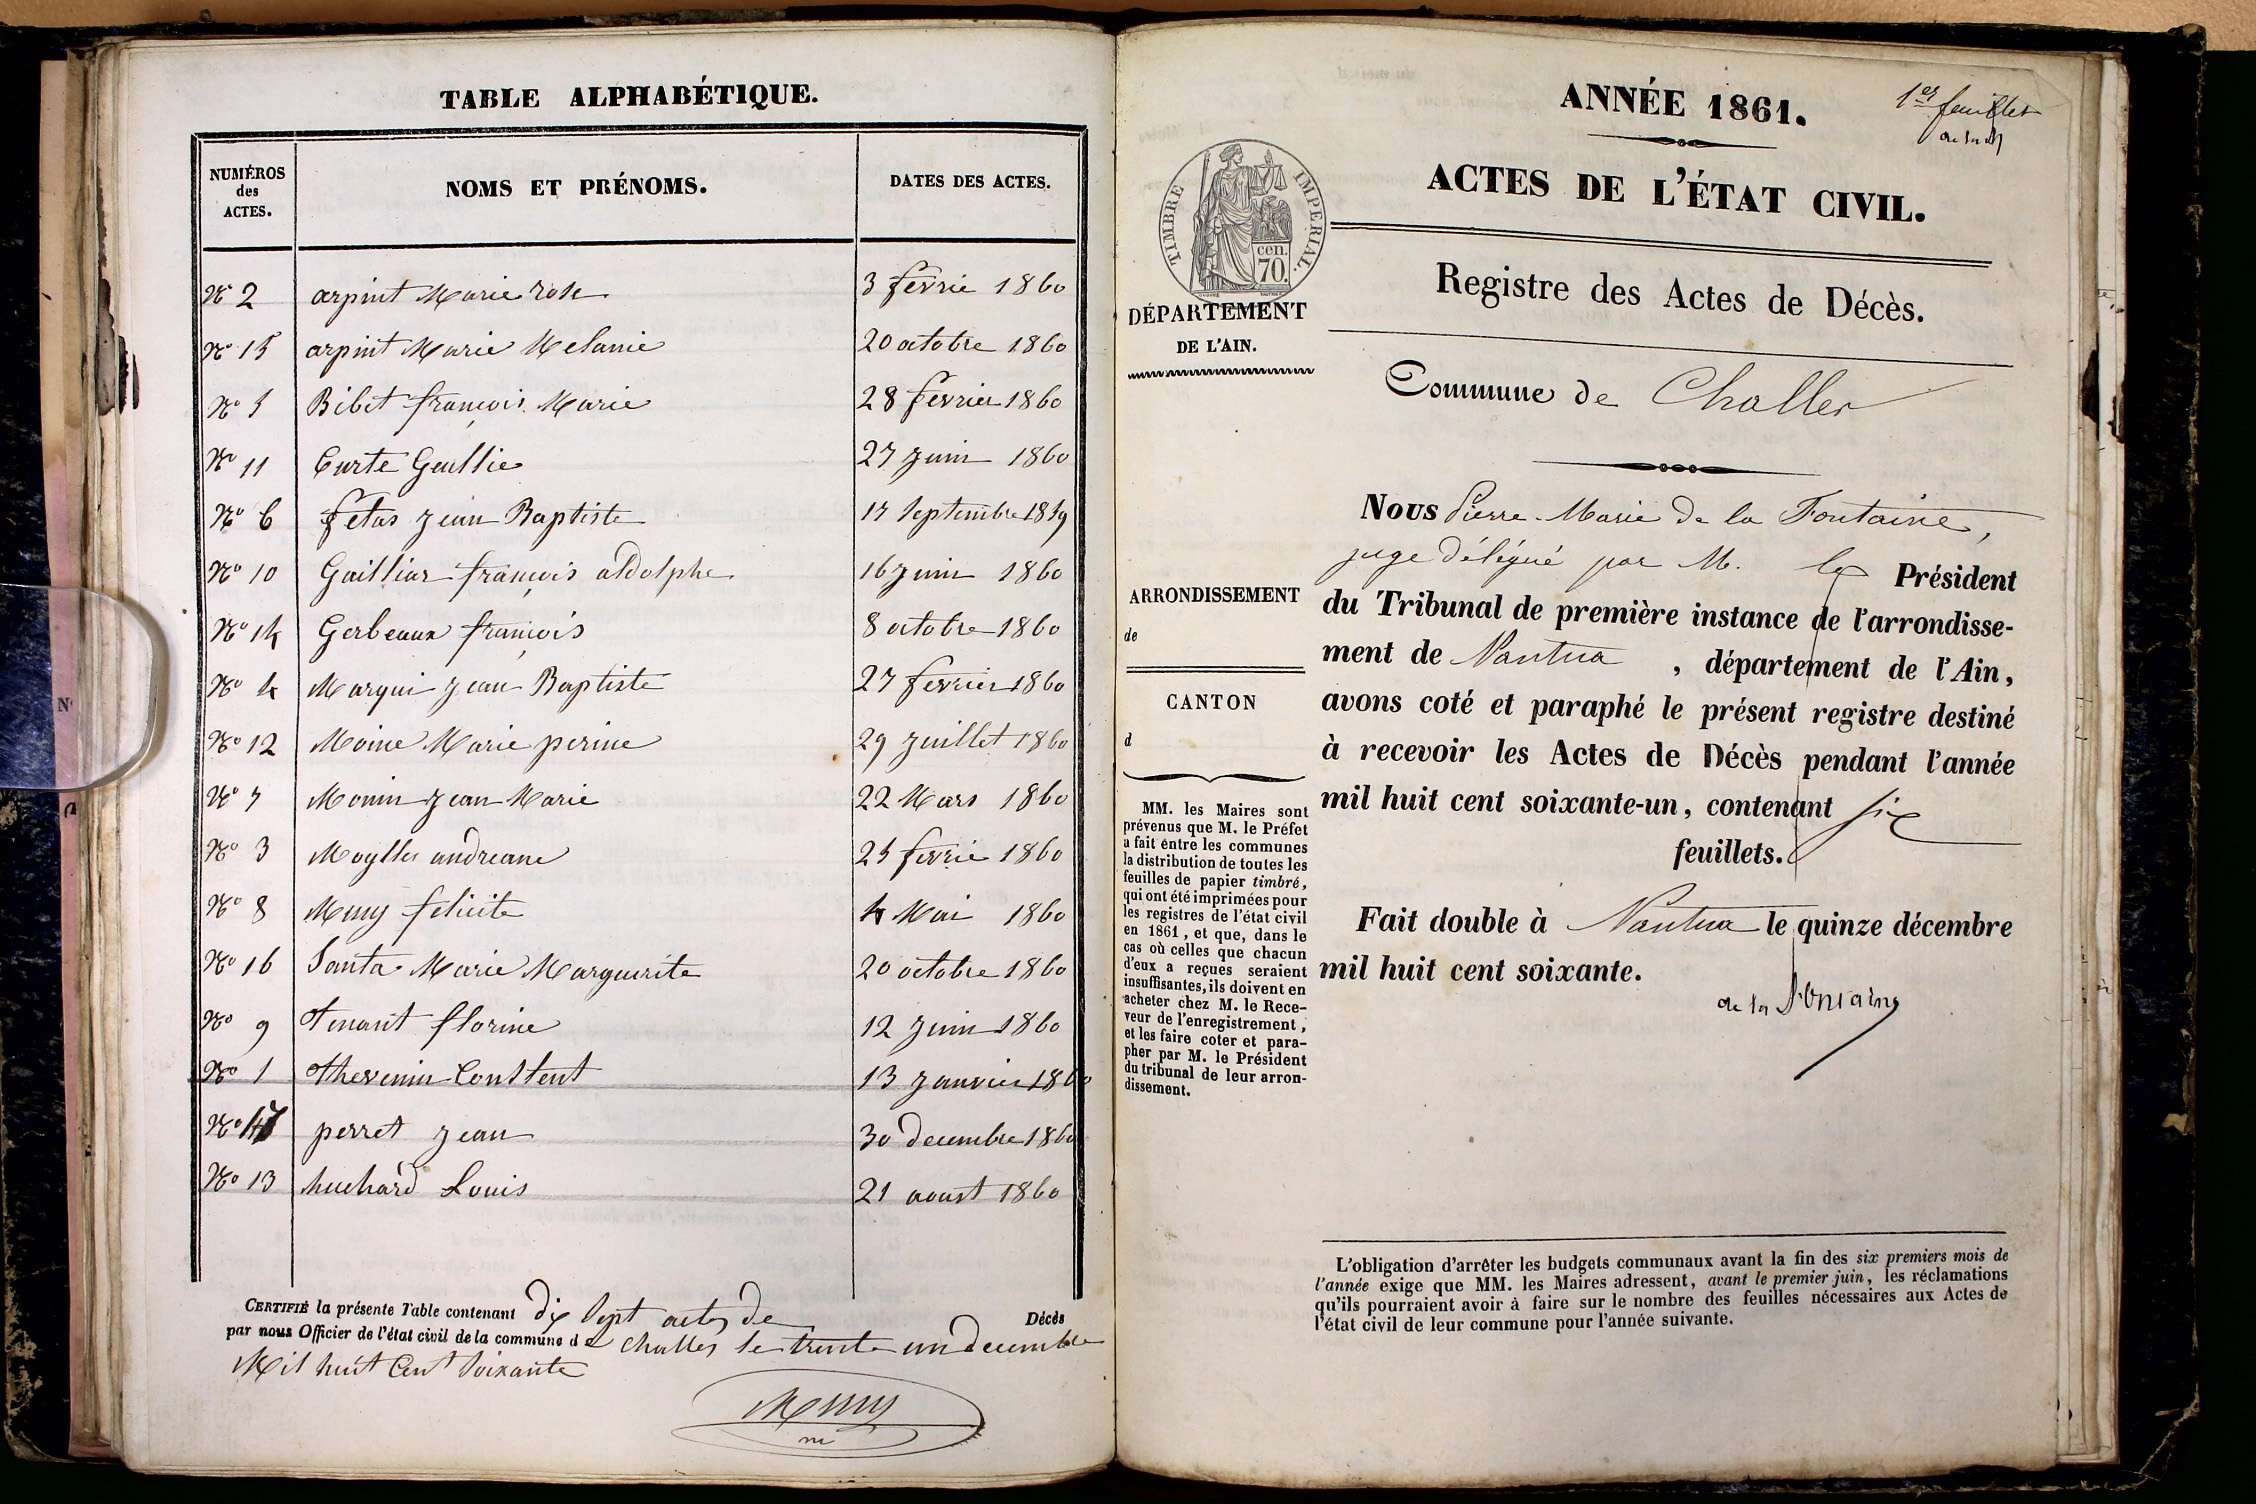 TABLE ALPHABÉTIQUE.
NUMÉROS
des
ACTES.
NOMS ET PRÉNOMS.
DATES DES ACTES.
No 2 arpint Marie rose 3 fevrie 1860
No 15 arpint Marie Melanie 20 octobre 1860
No 5 Bibet françois Marie 28 fevrier 1860
No 11 Curte 27 juin 1860
No 6 fetas jean Baptiste 17 Septembre 1859
No 10 Gailliar françois aldolphe 16 juin 1860
No 14 Gerbeaux françois 8 octobre 1860
No 4 Marqui jean Baptiste 27 fevrier 1860
No 12 Moine Marie perine 29 juillet 1860
No 7 Monin jean Marie 22 Mars 1860
No 3 andreane 25 fevrie 1860
No 8 felicite 4 Mai 1860
No 16 Santa Marie Marguerite 20 octobre 1860
No 9 Tenant florine 12 juin 1860
No 1 thevenin Constent 13 janvier 1860
No 17 perret jean 30 decembre 1860
No 13 huchard Louis 21 aoust 1860
CERTIFIÉ la présente Table contenant dix Sept actes de Décès
par nous Officier de l'état civil de la commune de challes le trente un decembre
Mil huit Cent Soixante
1er feuillet
ANNÉE 1861.
ACTES DE L'ÉTAT CIVIL.
TIMBRE IMPERIAL.
cen.
70.
Registre des Actes de Décès.
DÉPARTEMENT
DE L'AIN.
Commune de Challes
ARRONDISSEMENT
de
CANTON
d
MM. les Maires sont
prévenus que M. le Préfet
a fait entre les communes
la distribution de toutes les
feuilles de papier timbré,
qui ont été imprimées pour
les registres de l'état civil
en 1861, et que, dans le
cas où celles que chacun
d'eux a reçues seraient
insuffisantes, ils doivent en
acheter chez M. le Rece-
veur de l'enregistrement,
et les faire coter et para-
pher par M. le Président
du tribunal de leur arron-
dissement.
Nous Pierre-Marie de la Fontaine,
juge délégué par M. le Président
du Tribunal de première instance de l'arrondisse-
ment de Nantua, département de l'Ain,
avons coté et paraphé le présent registre destiné
à recevoir les Actes de Décès pendant l'année
mil huit cent soixante-un, contenant six
feuillets.
Fait double à Nantua le quinze décembre
mil huit cent soixante.
de la Fontaine
L'obligation d'arrêter les budgets communaux avant la fin des six premiers mois de
l'année exige que MM. les Maires adressent, avant le premier juin, les réclamations
qu'ils pourraient avoir à faire sur le nombre des feuilles nécessaires aux Actes de
l'état civil de leur commune pour l'année suivante.